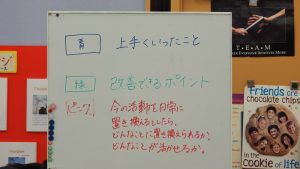 青 上手くいったこと
緑 改善できるポイント
ピンク 今の活動を日常に
置き換えるとしたら、
どんなことに置き換えられるか、
どんなことが活かせるか。
TEAM
Friends are
chocolate chips
in the
cookie of life